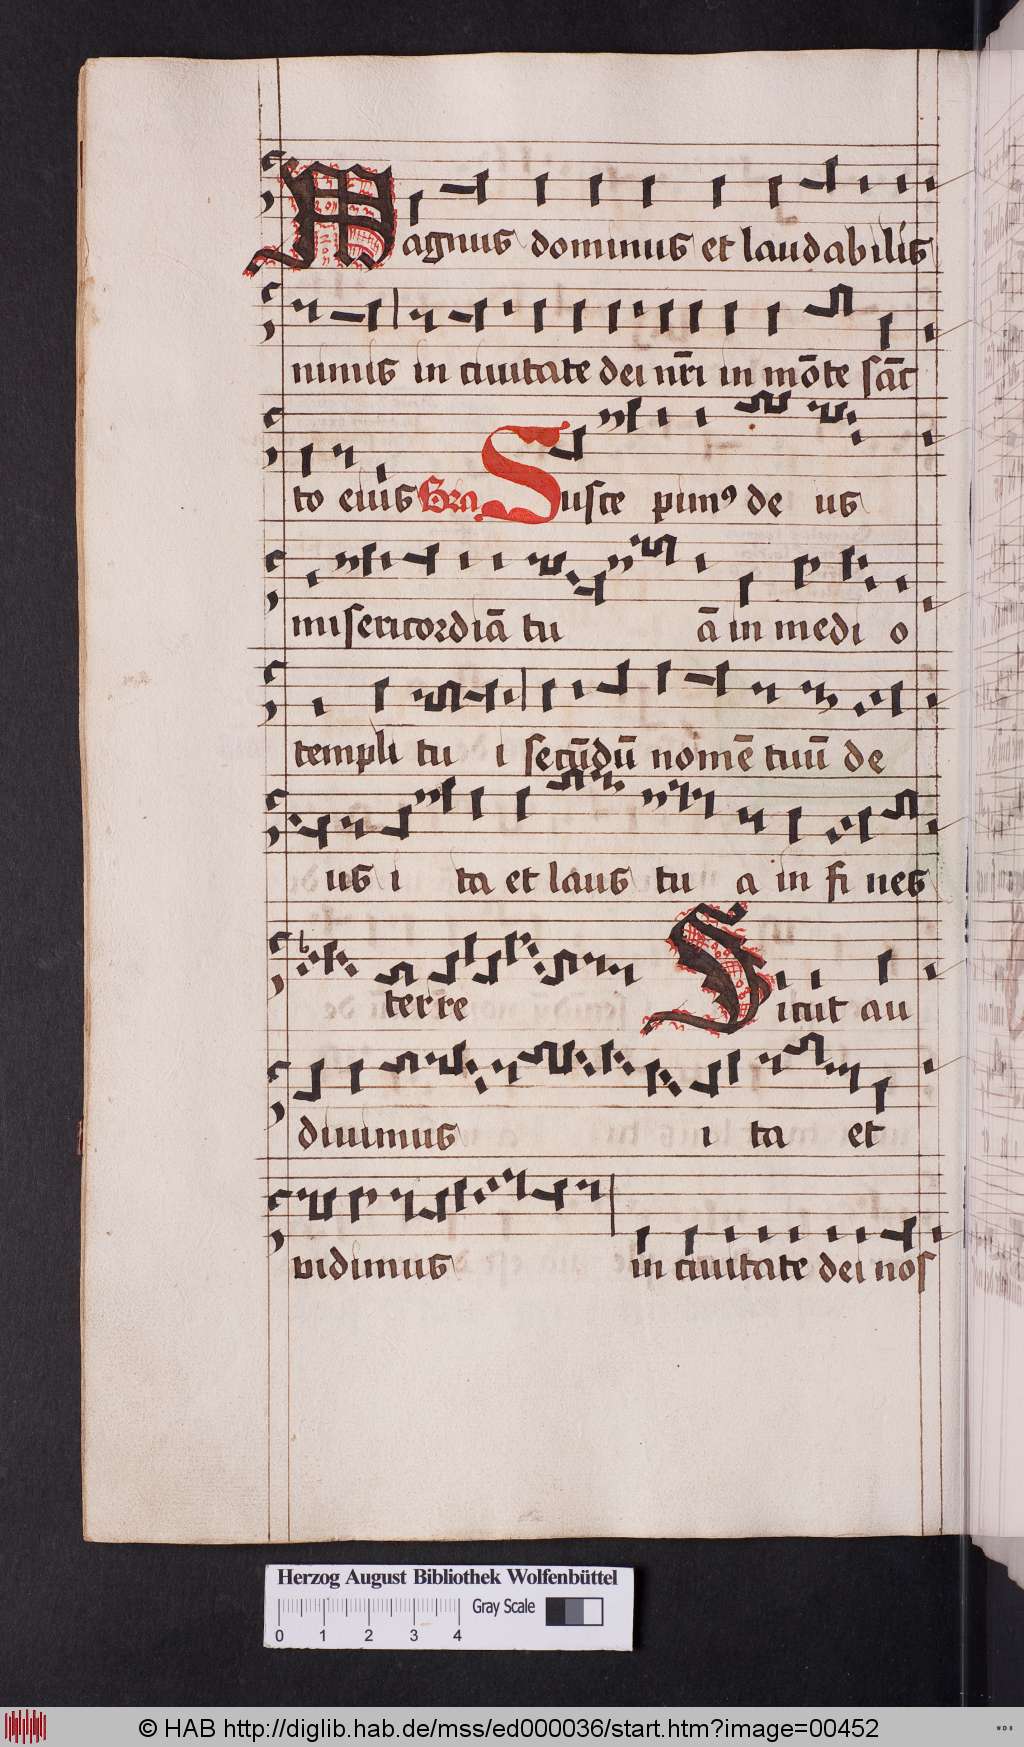 Magnus dominus et laudabilis
nimis in ciuitate dei nr̄i in mōte sāc
to eius Gra Susce pimꝰ de us
misericordiā tu ā in medi o
templi tu i secūdū nomē tuū de
us i ta et laus tu a in fi nes
terre Sicut au
diuimus i ta et
vidimus in ciuitate dei nos
Herzog August Bibliothek Wolfenbüttel
Gray Scale
0 1 2 3 4
© HAB http://diglib.hab.de/mss/ed000036/start.htm?image=00452